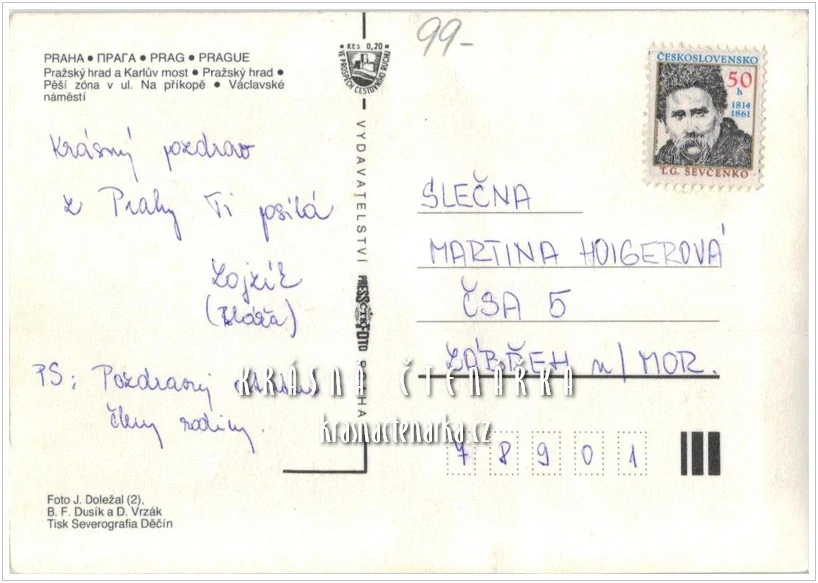 99-
PRAHA • ПРАГА • PRAG • PRAGUE
Pražský hrad a Karlův most • Pražský hrad •
Pěší zóna v ul. Na příkopě • Václavské
náměstí
Kčs 0,20
VE PROSPĚCH CESTOVNÍHO RUCHU
ČESKOSLOVENSKO
50
h
1814
1861
T.G. ŠEVČENKO
Krásný pozdrav
z Prahy Ti posílá
Lojzík
PS: Pozdravuj
členy rodiny.
VYDAVATELSTVÍ PRESSFOTO PRAHA
SLEČNA
MARTINA HOIGEROVÁ
ČSA 5
ZÁBŘEH n/MOR.
78901
KRÁSNÁ ČTENÁŘKA
krasnactenarka.cz
Foto J. Doležal (2),
B. F. Dusík a D. Vrzák
Tisk Severografia Děčín